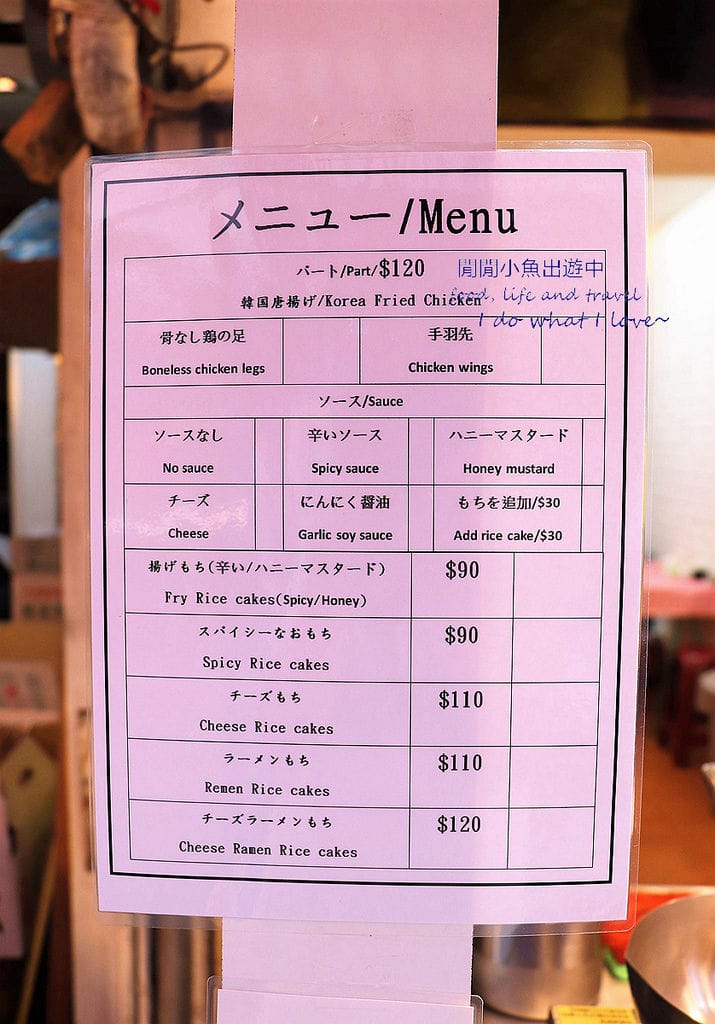 メニュー/Menu
パート/Part/$120
韓国唐揚げ/Korea Fried Chicken
閒閒小魚出遊中
food, life and travel
I do what I love~
骨なし鶏の足
Boneless chicken legs
手羽先
Chicken wings
ソース/Sauce
ソースなし
No sauce
辛いソース
Spicy sauce
ハニーマスタード
Honey mustard
チーズ
Cheese
にんにく醤油
Garlic soy sauce
もちを追加/$30
Add rice cake/$30
揚げもち(辛い/ハニーマスタード) $90
Fry Rice cakes(Spicy/Honey)
スパイシーなおもち $90
Spicy Rice cakes
チーズもち $110
Cheese Rice cakes
ラーメンもち $110
Remen Rice cakes
チーズラーメンもち $120
Cheese Ramen Rice cakes